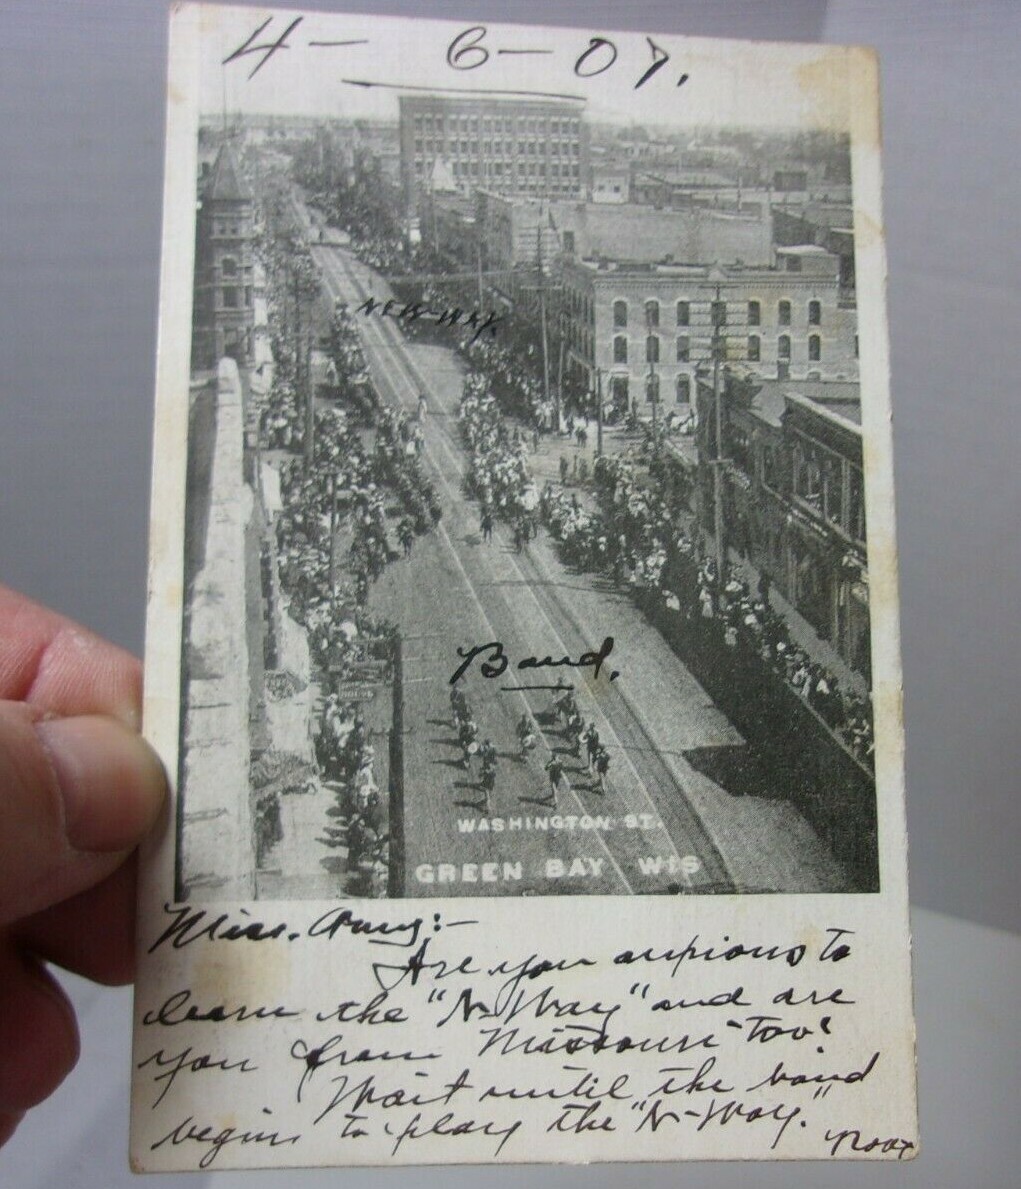 4-6-07.
NEW-WAY.
Band.
WASHINGTON ST.
GREEN BAY WIS
Miss. Amy:-
Are you anxious to
learn the "N-Way" and are
you from Missouri too?
Wait until the band
begins to play the "N-Way."